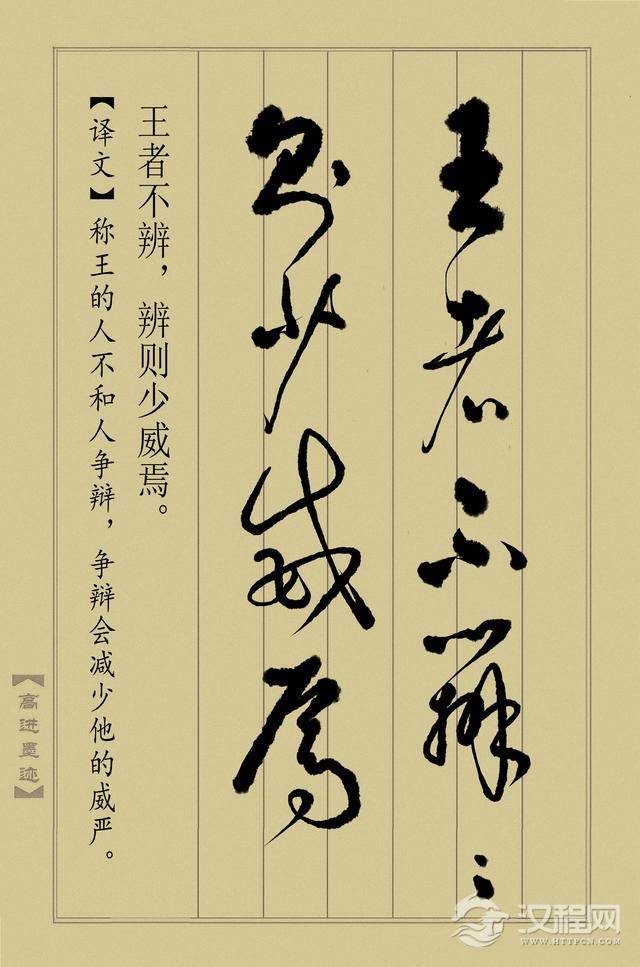 王者不辨〻
则少威焉
王者不辨，辨则少威焉。
【译文】称王的人不和人争辩，争辩会减少他的威严。
【高进墨迹】
汉程网
WWW.HTTPCN.COM